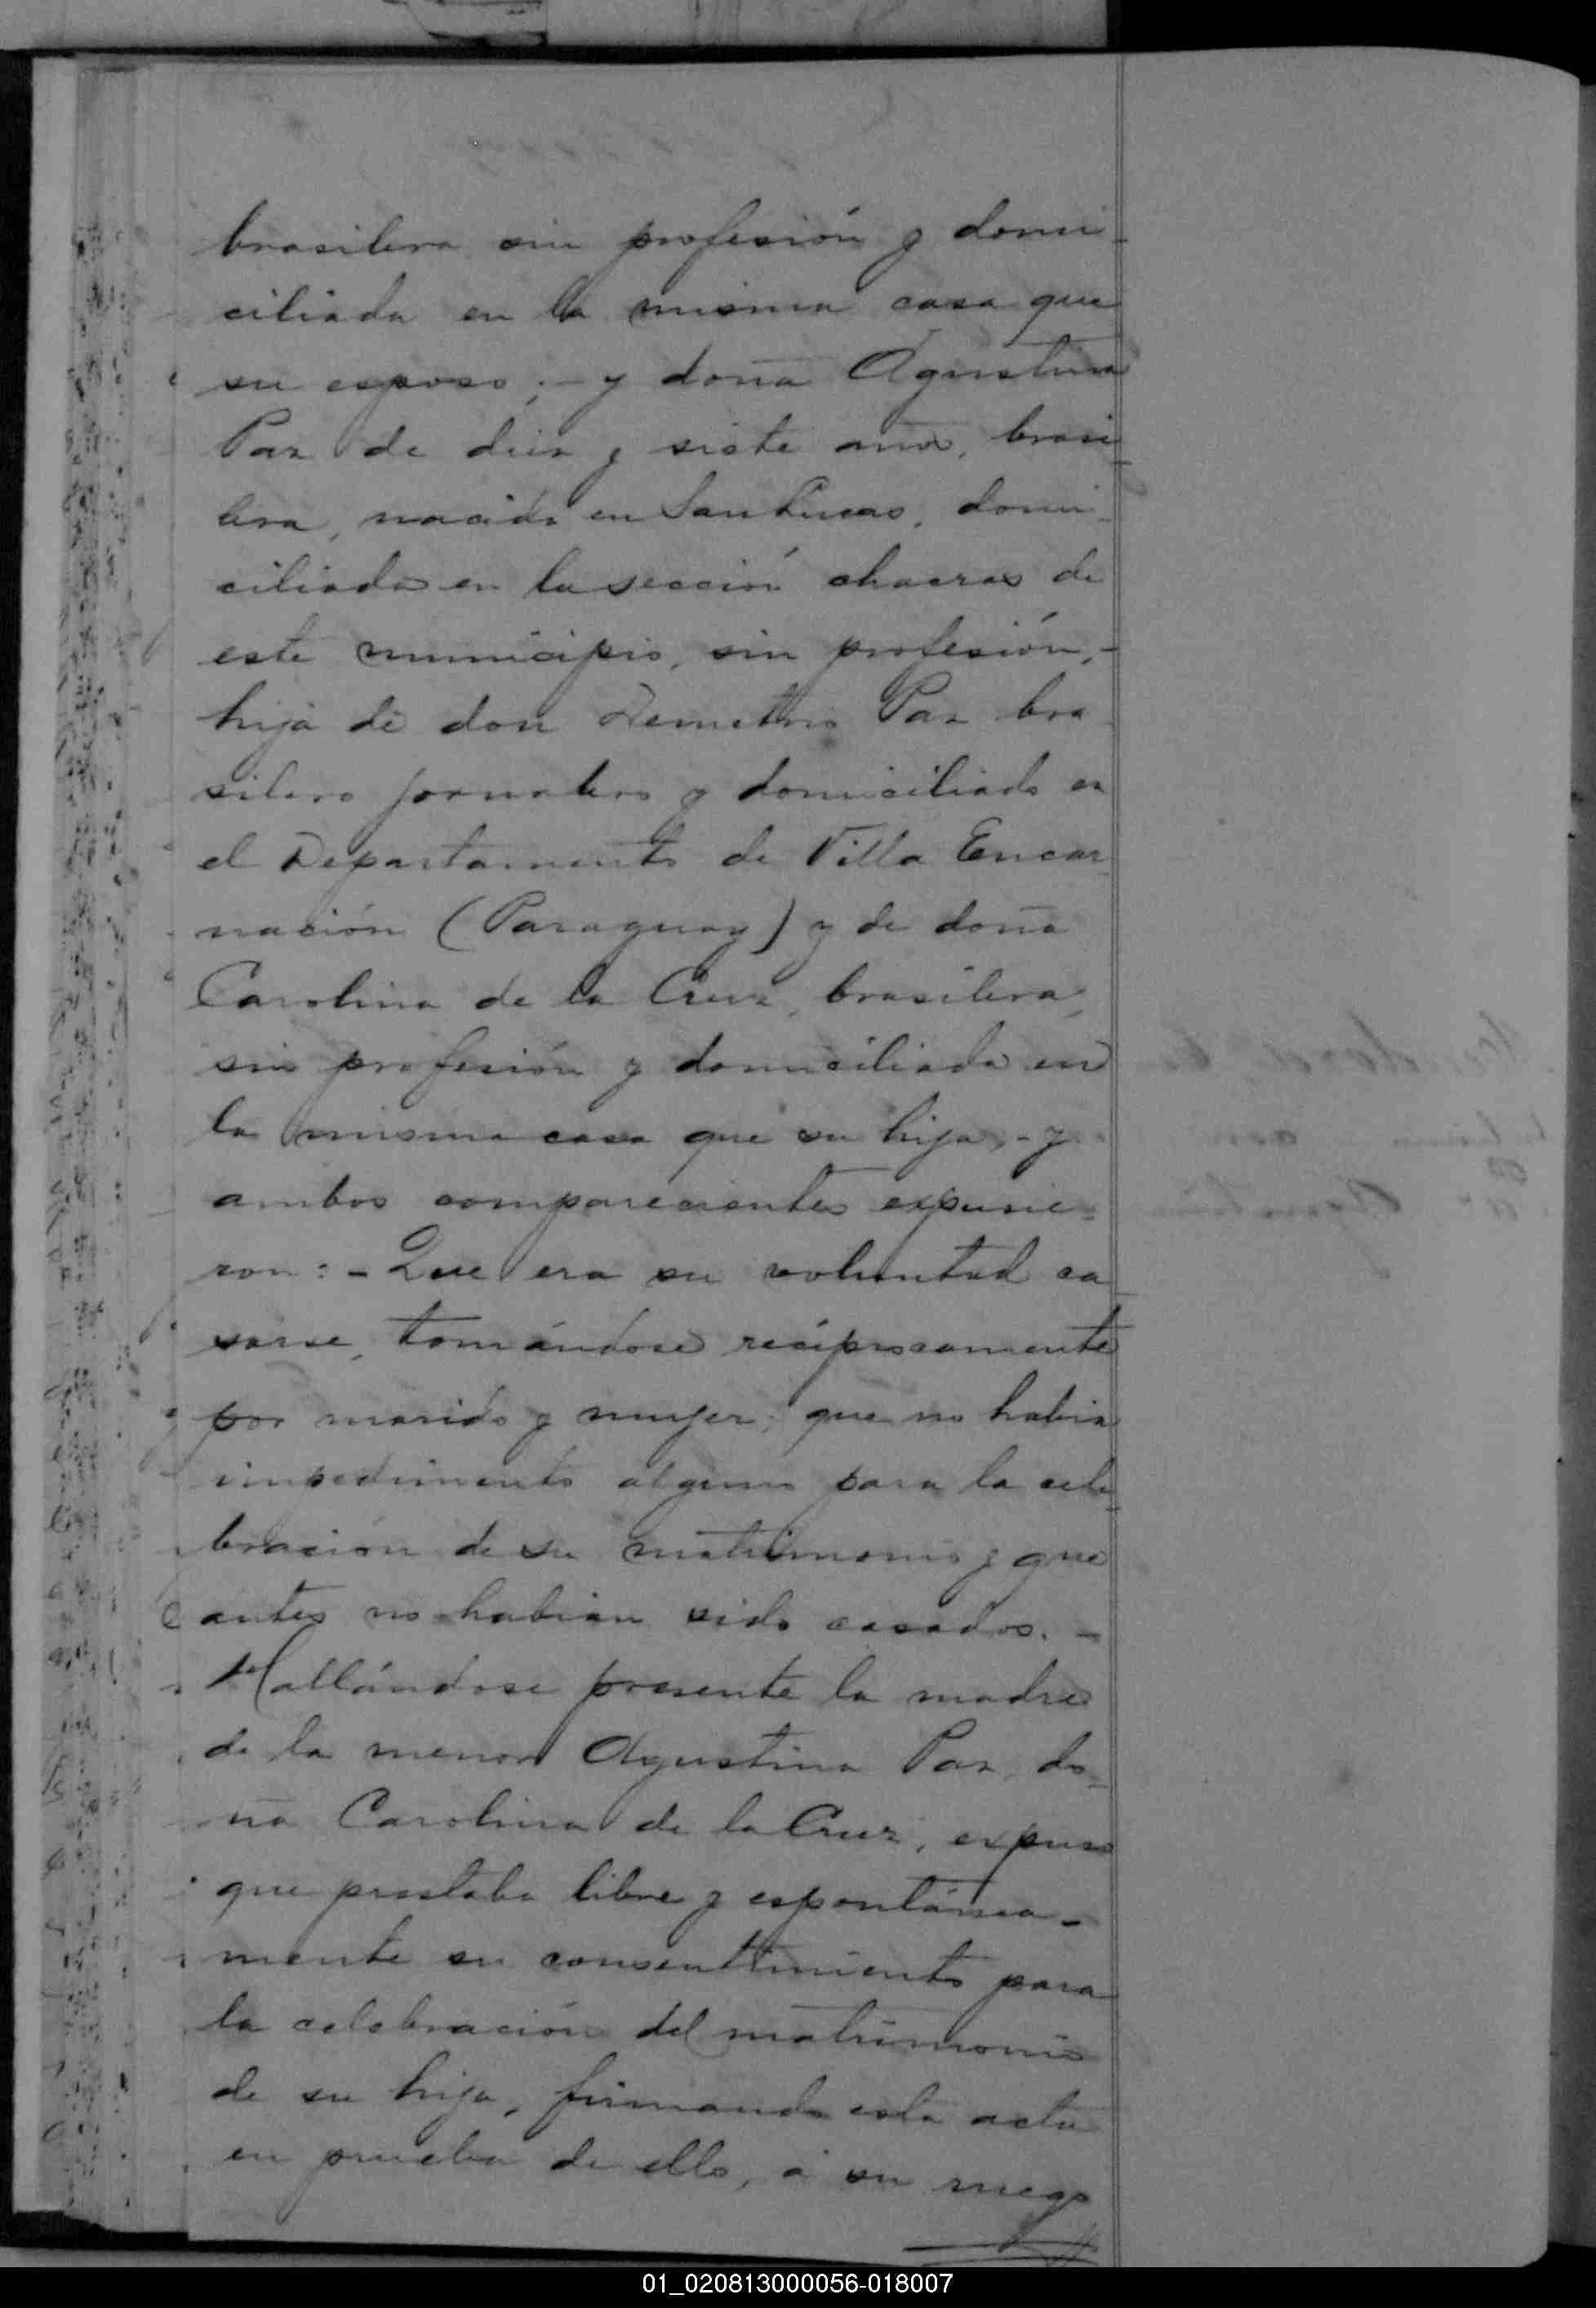 brasilera sin profesión y domi-
ciliada en la misma casa que
su esposo; - y doña Agustina
Paz de diez y siete años, brasi-
lera, nacida en San Lucas, domi-
ciliada en la sección chacras de
este municipio, sin profesión, -
hija de don Demetrio Paz bra
silero jornalero y domiciliado en
el Departamento de Villa Encar
nación (Paraguay) y de doña
Carolina de la Cruz, brasilera,
sin profesión y domiciliada en
la misma casa que su hija, - y
ambos comparecientes expusie-
ron: - Que era su voluntad ca
sarse, tomándose recíprocamente
por marido y mujer; que no habia
impedimento alguno para la cele-
bración de su matrimonio y que
antes no habian sido casados. -
Hallándose presente la madre
de la menor Agustina Paz, do-
ña Carolina de la Cruz, expuso
que prestaba libre y espontánea-
mente su consentimiento para
la celebración del matrimonio
de su hija, firmando esta acta
en prueba de ello, á su ruego
01_020813000056-018007